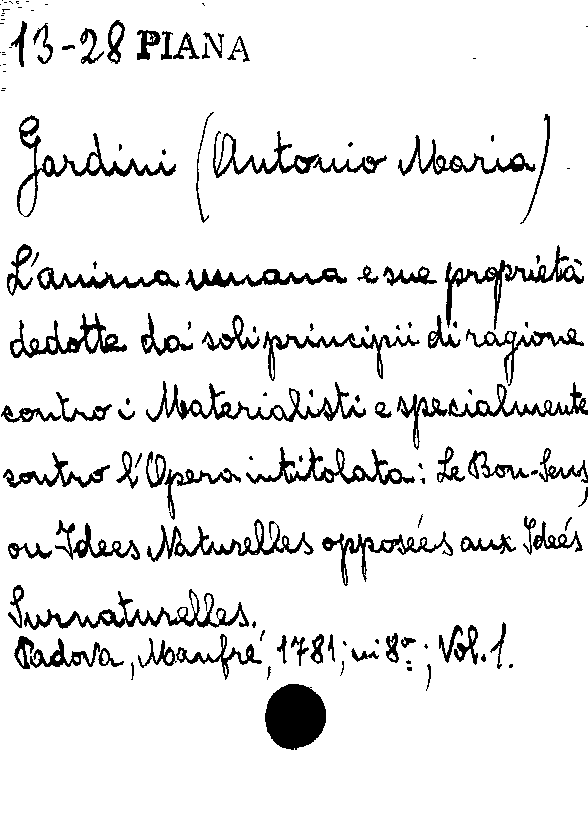 13-28 PIANA
Gardini (Antonio Maria)
L'anima umana e sue proprietà
dedotte da' soli principii di ragione
contro i Materialisti e specialmente
contro l'Opera intitolata: Le Bon-Sens,
ou Idees Naturelles opposées aux Ideés
Surnaturelles.
Padova, Manfré, 1781; in 8º.; Vol. 1.